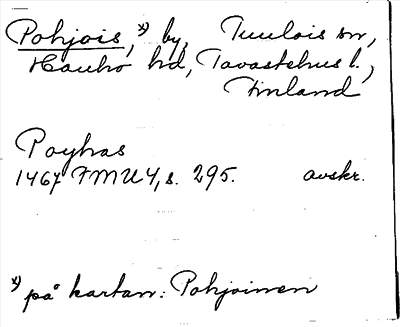 Pohjois, x) by, Tuulois sn,
Hauho hd, Tavastehus l.,
Finland
Poyhas
1467 FMU 4, s. 295. avskr.
x) på kartan: Pohjoinen